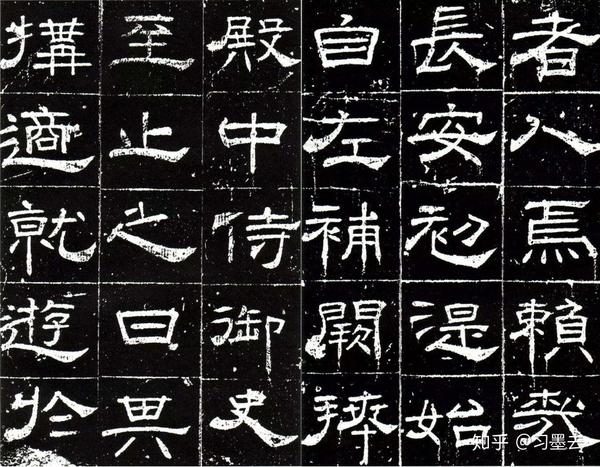 者人焉賴哉
長安初湜始
自左補闕拜
殿中侍御史
至止之日其
搆適就遊於
知乎 @习墨云